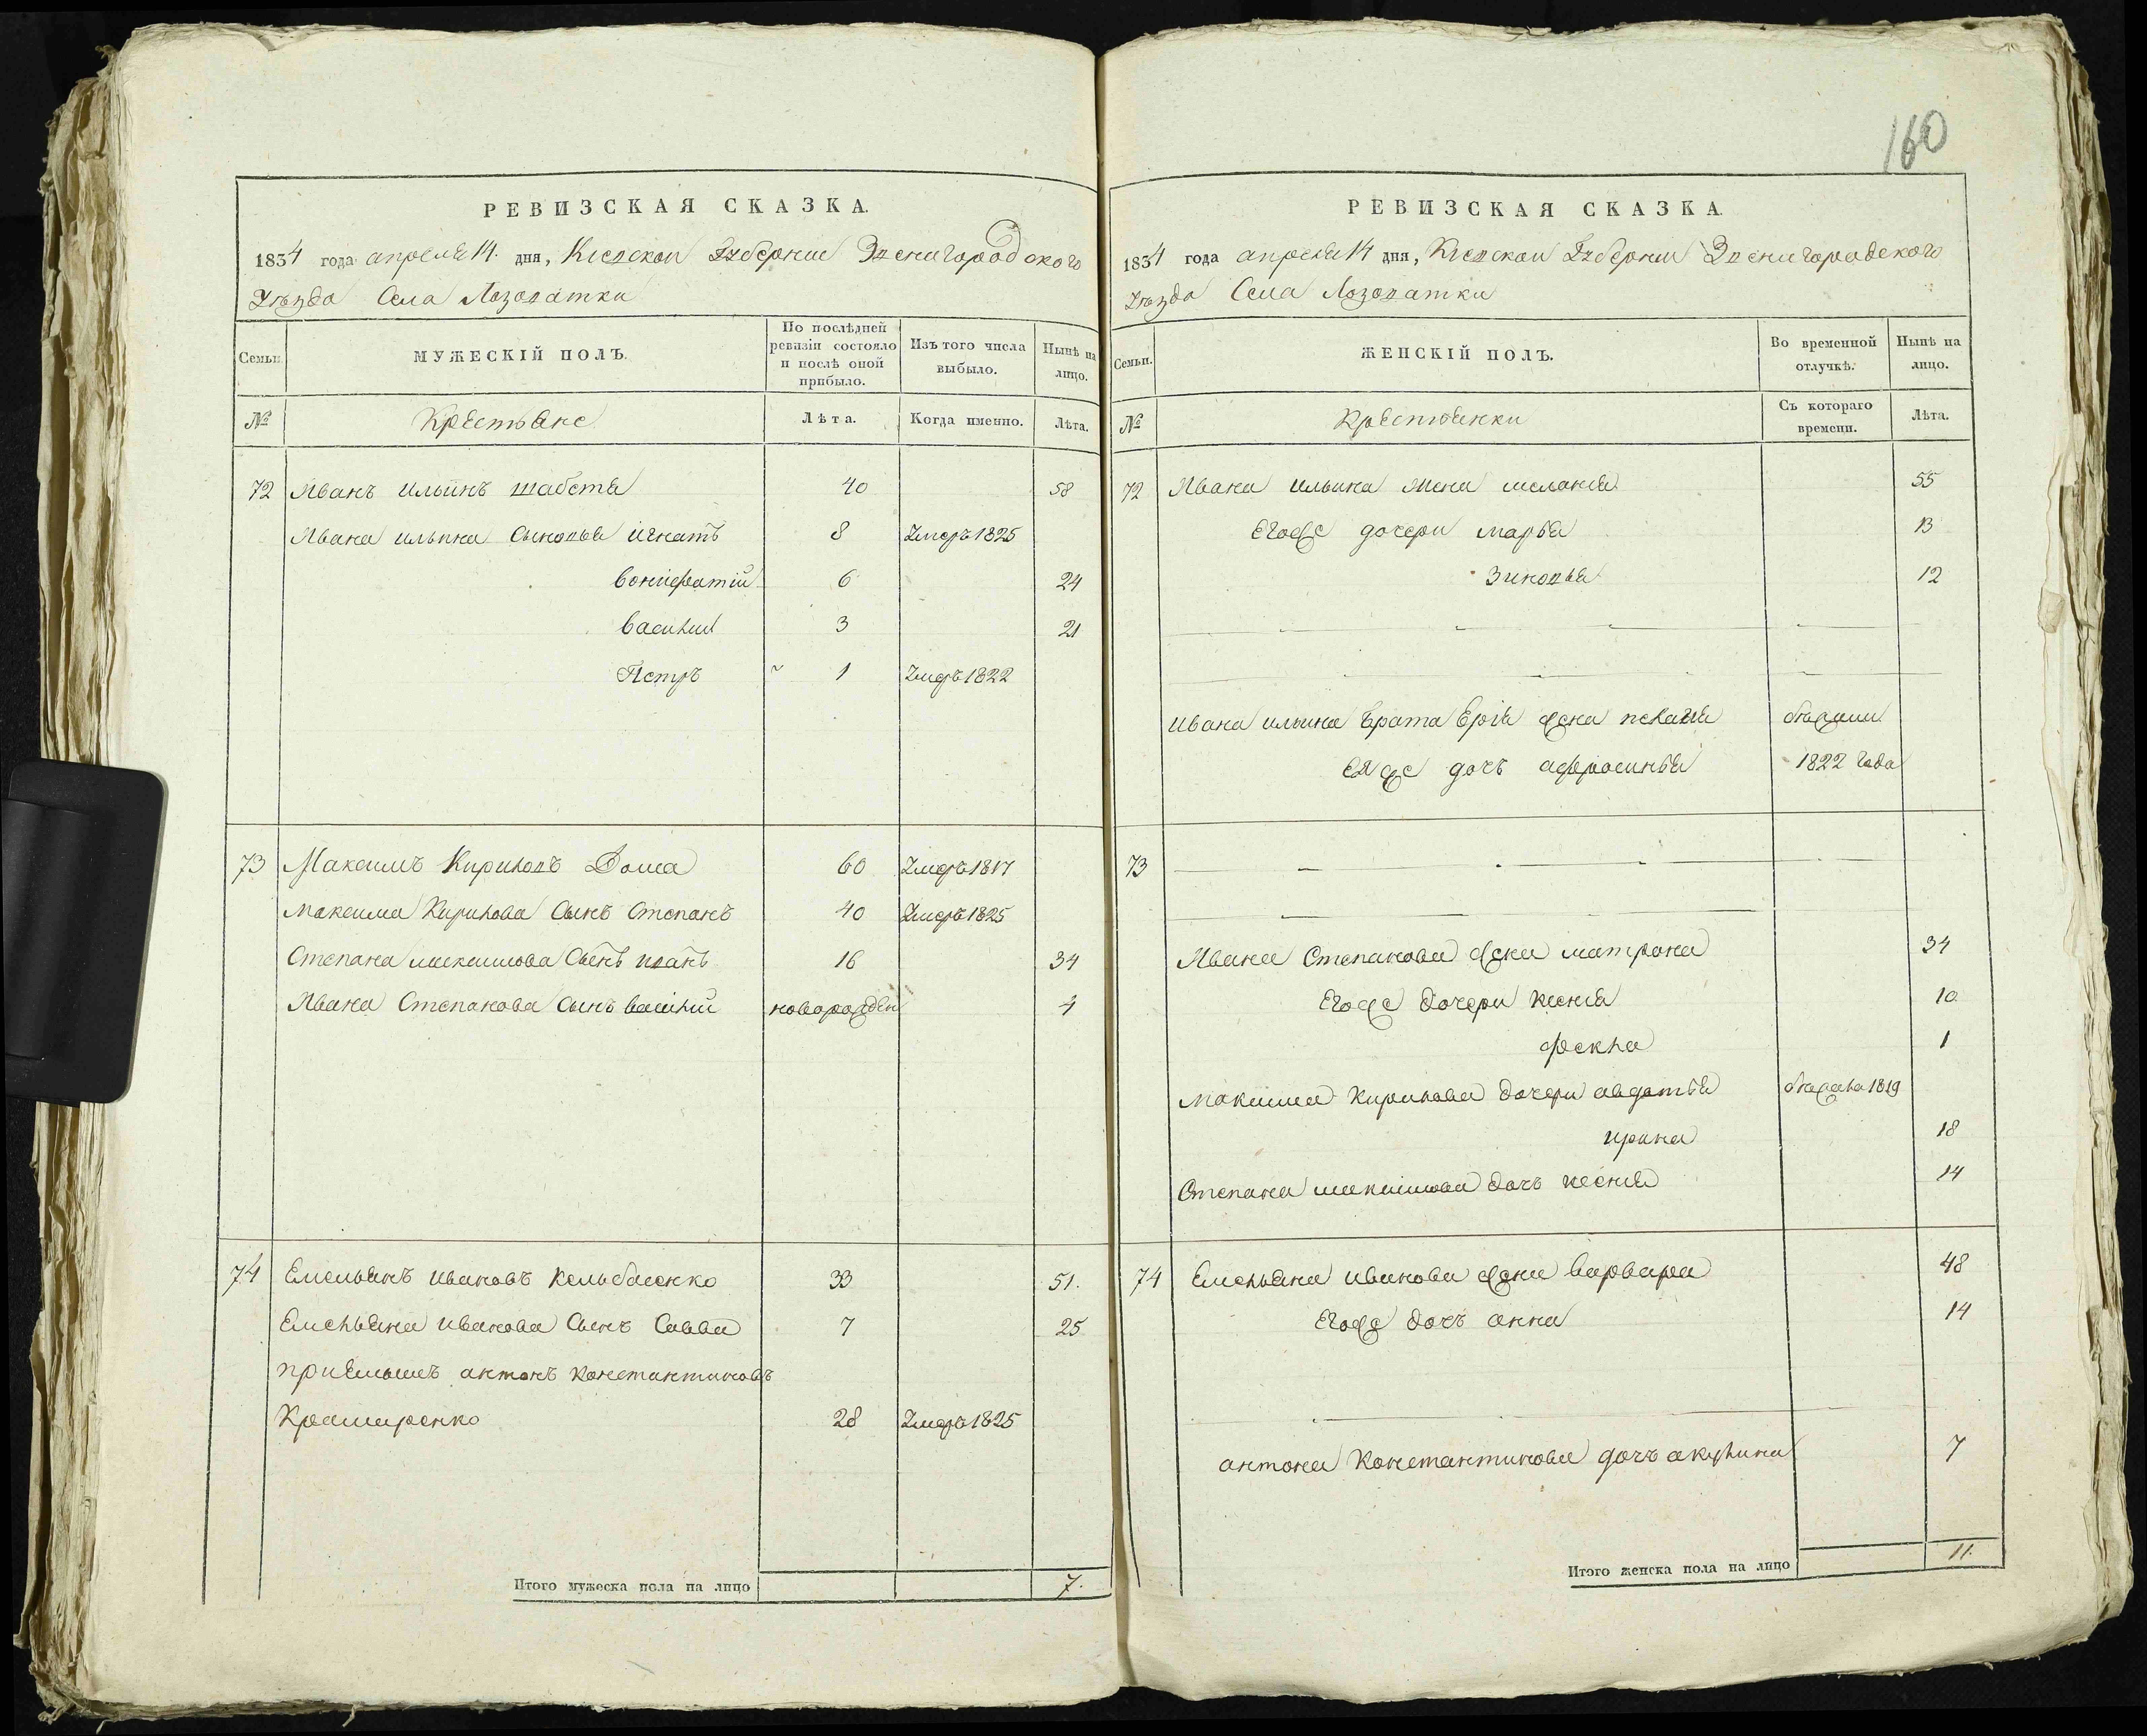 160
РЕВИЗСКАЯ СКАЗКА.
1834 года апреля 14. дня, Киевской Губернии Звенигородского
Уезда Села Лозоватки
Семьи.
МУЖЕСКІЙ ПОЛЪ.
По послѣдней ревизіи состояло и послѣ оной прибыло.
Изъ того числа выбыло.
Нынѣ на лицо.
№
Крестьяне
Лѣта.
Когда именно.
Лѣта.
72 Иванъ ильинъ шабетя 40 58
Ивана ильина сыновья игнатъ 8 Умеръ 1825
вонифатій 6 24
василий 3 21
Петръ 1 Умеръ 1822
73 Максимъ Кириловъ Дома 60 Умеръ 1817
максима Кирилова сынъ степанъ 40 Умеръ 1825
Степана максимова сынъ иванъ 16 34
Ивана Степанова сынъ василий новорожден 4
74 Емельянъ ивановъ 33 51.
Емельяна иванова сынъ Савва 7 25
приемышъ антонъ константиновъ
28 Умеръ 1825
Итого мужеска пола на лицо 7.
РЕВИЗСКАЯ СКАЗКА.
1834 года апреля 14 дня, Киевской Губернии Звенигородского
Уезда Села Лозоватки
Семьи.
ЖЕНСКІЙ ПОЛЪ.
Во временной отлучкѣ.
Нынѣ на лицо.
№
Крестьянки
Съ котораго времени.
Лѣта.
72 Ивана ильина жена мелания 55
Егоже дочери марья 13
Зиновья 12
Ивана ильина брата жена пелагия
еяже дочъ афросинья 1822 года
73
Ивана Степанова жена матрона 34
Егоже дочери ксения 10
фекла 1
максима кирилова дочери авдотья 1819
ирина 18
Степана максимова дочъ ксения 14
74 Емельяна иванова жена варвара 48
Егоже дочъ анна 14
антона константинова дочъ акулина 7
Итого женска пола на лицо 11.